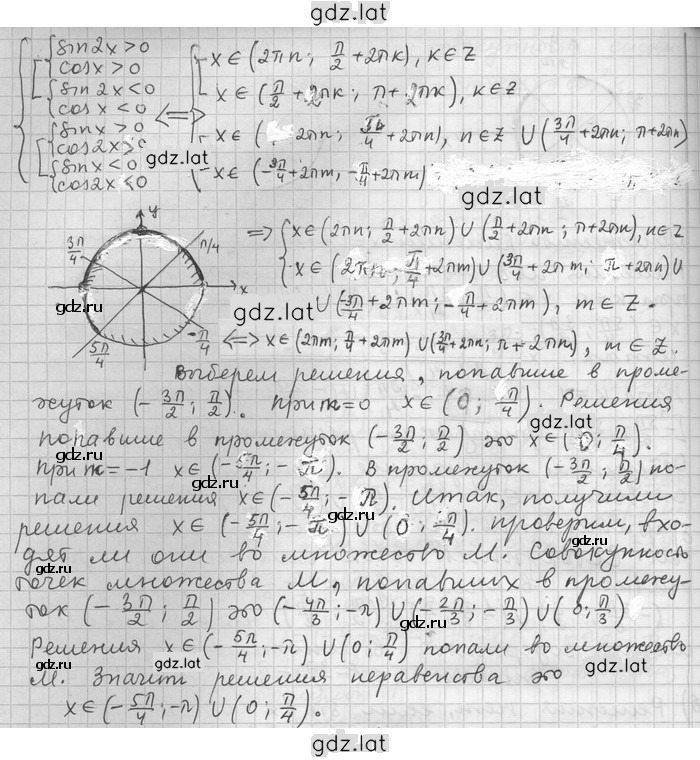 gdz.lat
{ [ { sin2x > 0
cosx > 0
{ sin2x < 0
cosx < 0
[ { sinx > 0
cos2x > 0
{ sinx < 0
cos2x < 0
⟺
x ∈ (2πn; π/2 + 2πk), k ∈ Z
x ∈ (π/2 + 2πk; π + 2πk), k ∈ Z
x ∈ ( 2πn; π/4 + 2πn), n ∈ Z ∪ (3π/4 + 2πn; π + 2πn)
x ∈ (-3π/4 + 2πm, -π/4 + 2πm)
gdz.lat
gdz.lat
y
3π/4
π/4
x
5π/4
-π/4
gdz.lat
gdz.lat
⟹ { x ∈ (2πn; π/2 + 2πn) ∪ (π/2 + 2πn; π + 2πn), n ∈ Z
x ∈ (2πn; π/4 + 2πm) ∪ (3π/4 + 2πm; π + 2πn) ∪
∪ (-3π/4 + 2πm; -π/4 + 2πm), m ∈ Z.
⟺ x ∈ (2πm; π/4 + 2πm) ∪ (3π/4 + 2πn; π + 2πm), m ∈ Z.
Выберем решения, попавшие в проме-
жуток (-3π/2; π/2). При m=0 x ∈ (0; π/4). Решения
gdz.lat
попавшие в промежуток (-3π/2; π/2) это x ∈ (0; π/4).
gdz.lat
При m=-1 x ∈ (-5π/4; -π). В промежуток (-3π/2; π/2) по-
пали решения x ∈ (-5π/4; -π). Итак, получили
gdz.lat
решения x ∈ (-5π/4; -π) ∪ (0; π/4). проверим, вхо-
gdz.lat
дят ли они во множество M. Совокупность
точек множества M, попавших в промежу-
gdz.lat
ток (-3π/2; π/2) это (-4π/3; -π) ∪ (-2π/3; -π/3) ∪ (0; π/3)
gdz.lat
Решения x ∈ (-5π/4; -π) ∪ (0; π/4) попали во множество
gdz.lat
gdz.lat
M. Значит решения неравенства это
x ∈ (-5π/4; -π) ∪ (0; π/4).
gdz.lat
gdz.lat